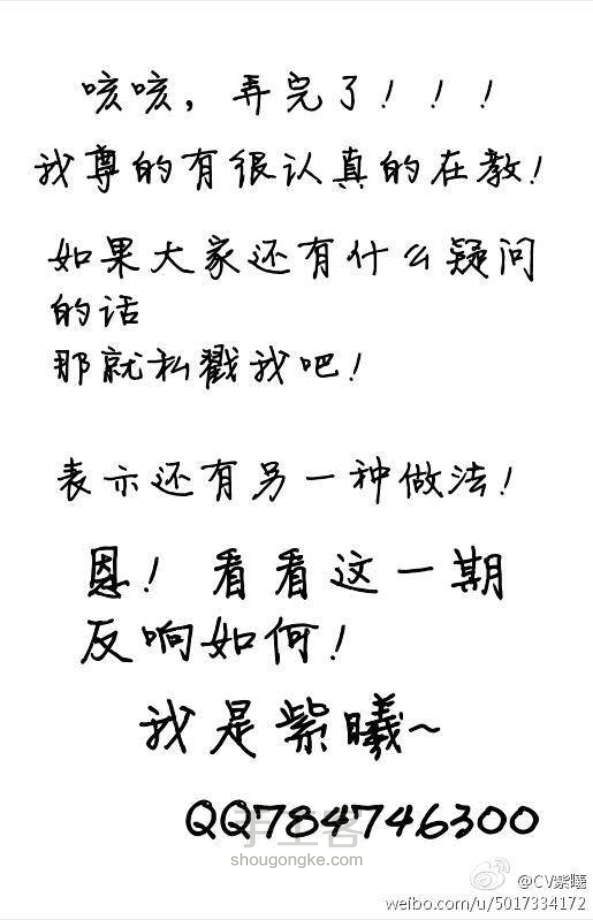 咳咳，弄完了！！！
我尊的有很认真的在教！
如果大家还有什么疑问
的话
那就私戳我吧！
表示还有另一种做法！
恩！看看这一期
反响如何！
我是紫曦~
QQ784746300
手工客
shougongke.com
@CV紫曦
weibo.com/u/5017334172